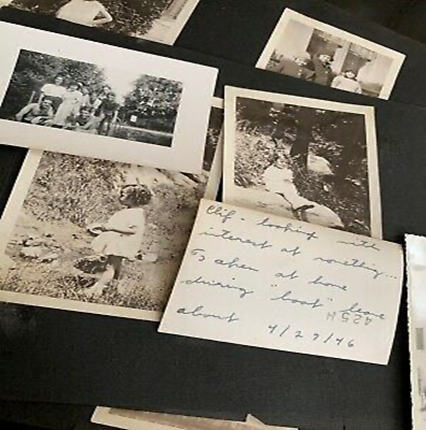 Clif - looking with
interest at something...
Taken at home
during "boot" leave
H524
about 4/29/46